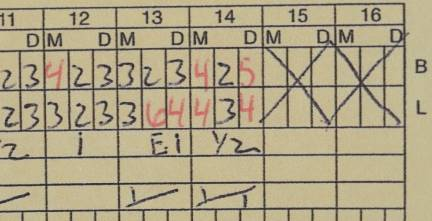 11 12 13 14 15 16
D M D M D M D M D M D
2 3 4 2 3 3 2 3 4 2 5 B
2 3 3 2 3 3 6 4 4 3 4 L
1 E1 1/2